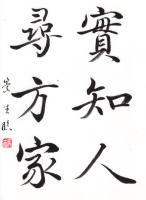 實知人
尋方家